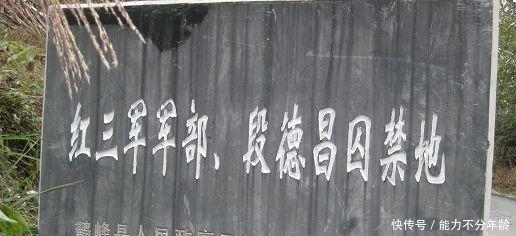 红三军军部、段德昌囚禁地
鹤峰县人民政府
快传号/能力不分年龄